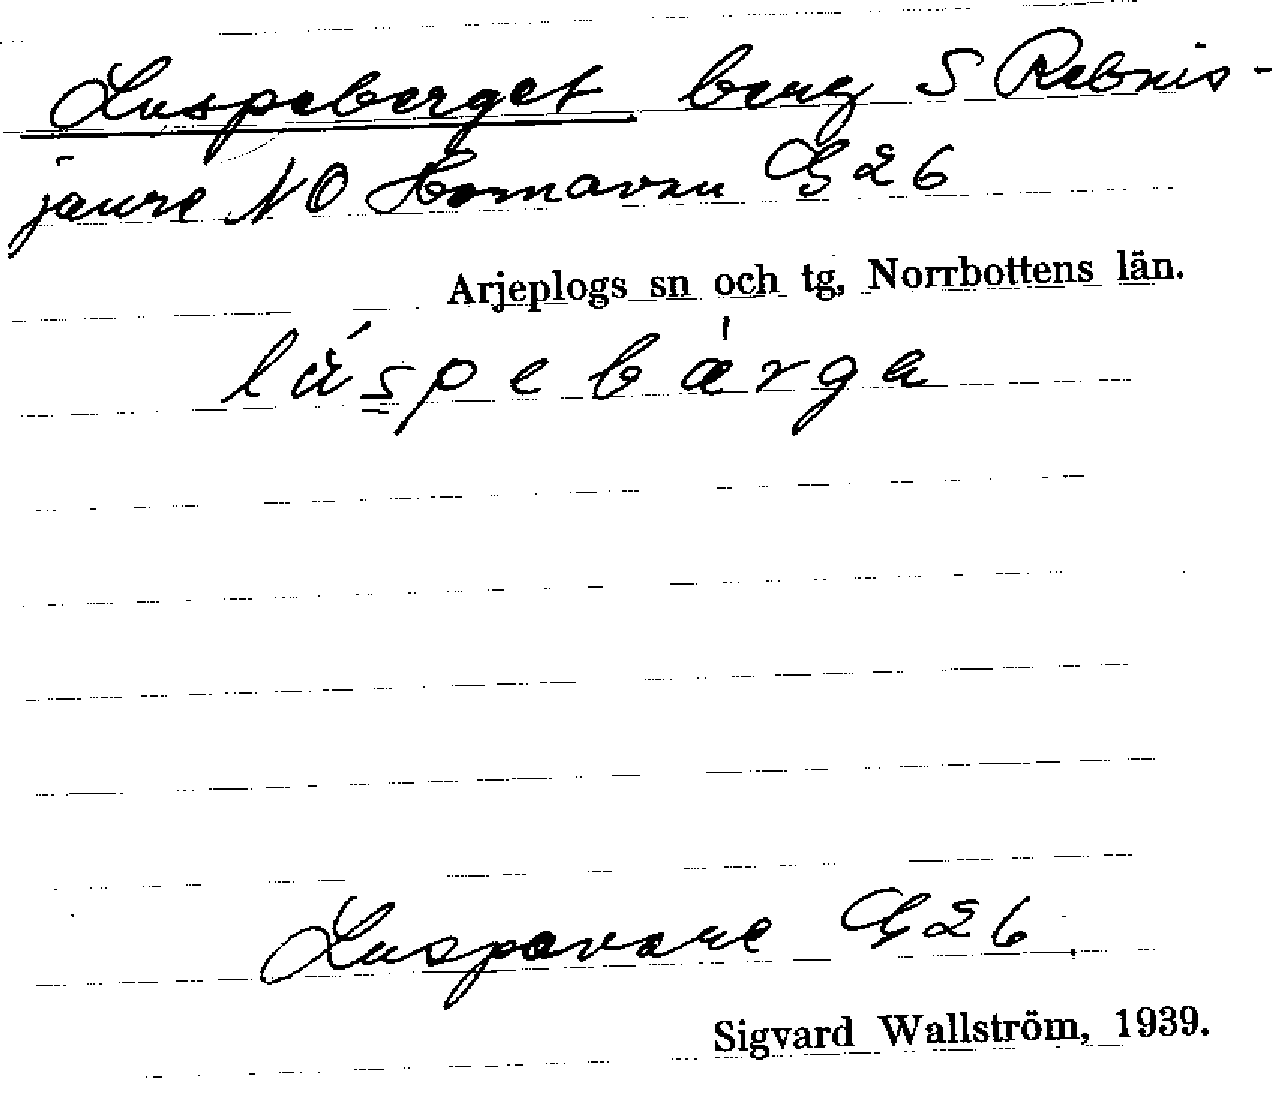 Luspeberget berg S Rebnis-
jaure NO Hornavan G 26
Arjeplogs sn och tg, Norrbottens län.
Luspavare G 26
Sigvard Wallström, 1939.